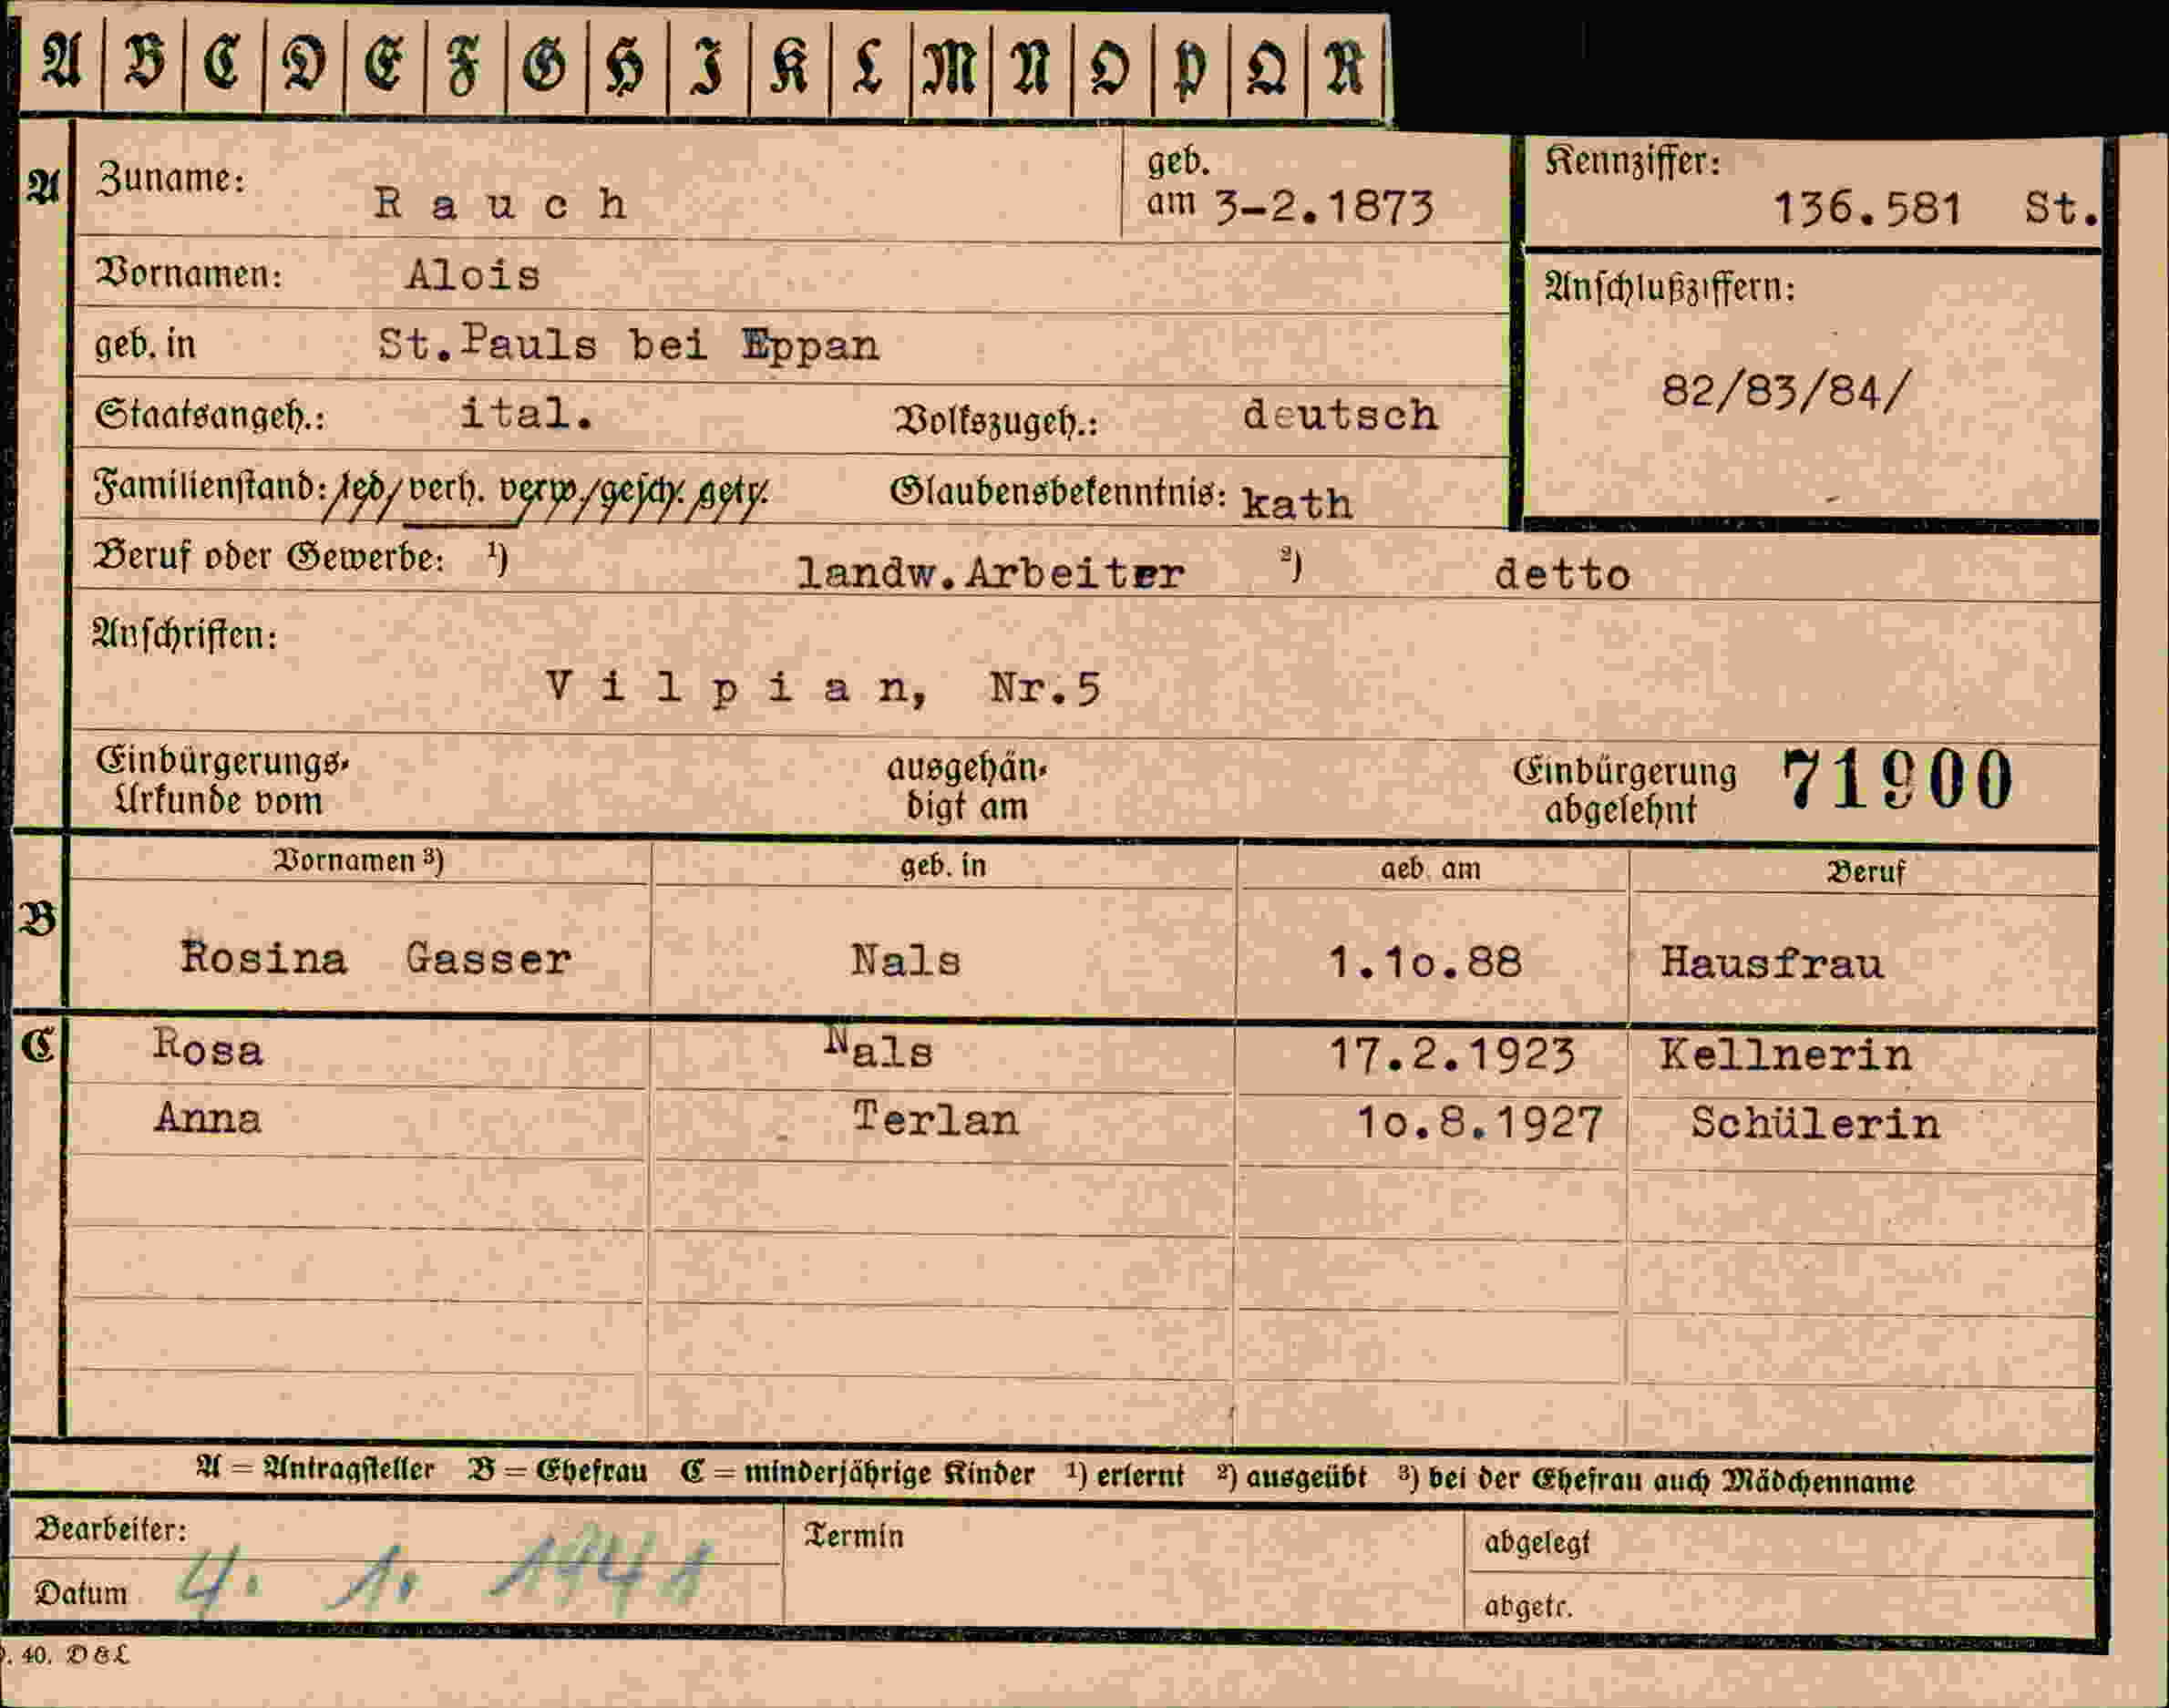 A B C D E F G H I K L M N O P Q R
A
Zuname: Rauch
geb. am 3-2.1873
Kennziffer: 136.581 St.
Vornamen: Alois
Anschlußziffern:
82/83/84/
geb. in St.Pauls bei Eppan
Staatsangeh.: ital. Volkszugeh.: deutsch
Familienstand: led/verh. verw./gesch. getr. Glaubensbekenntnis: kath
Beruf oder Gewerbe: ¹) landw.Arbeiter ²) detto
Anschriften:
Vilpian, Nr.5
Einbürgerungs- ausgehän- Einbürgerung 71900
Urkunde vom digt am abgelehnt
Vornamen ³) geb. in geb. am Beruf
B
Rosina Gasser Nals 1.10.88 Hausfrau
C Rosa Nals 17.2.1923 Kellnerin
Anna Terlan 10.8.1927 Schülerin
A = Antragsteller B = Ehefrau C = minderjährige Kinder ¹) erlernt ²) ausgeübt ³) bei der Ehefrau auch Mädchenname
Bearbeiter: Termin abgelegt
Datum 4. 1. 1941 abgetr.
. 40. D&L